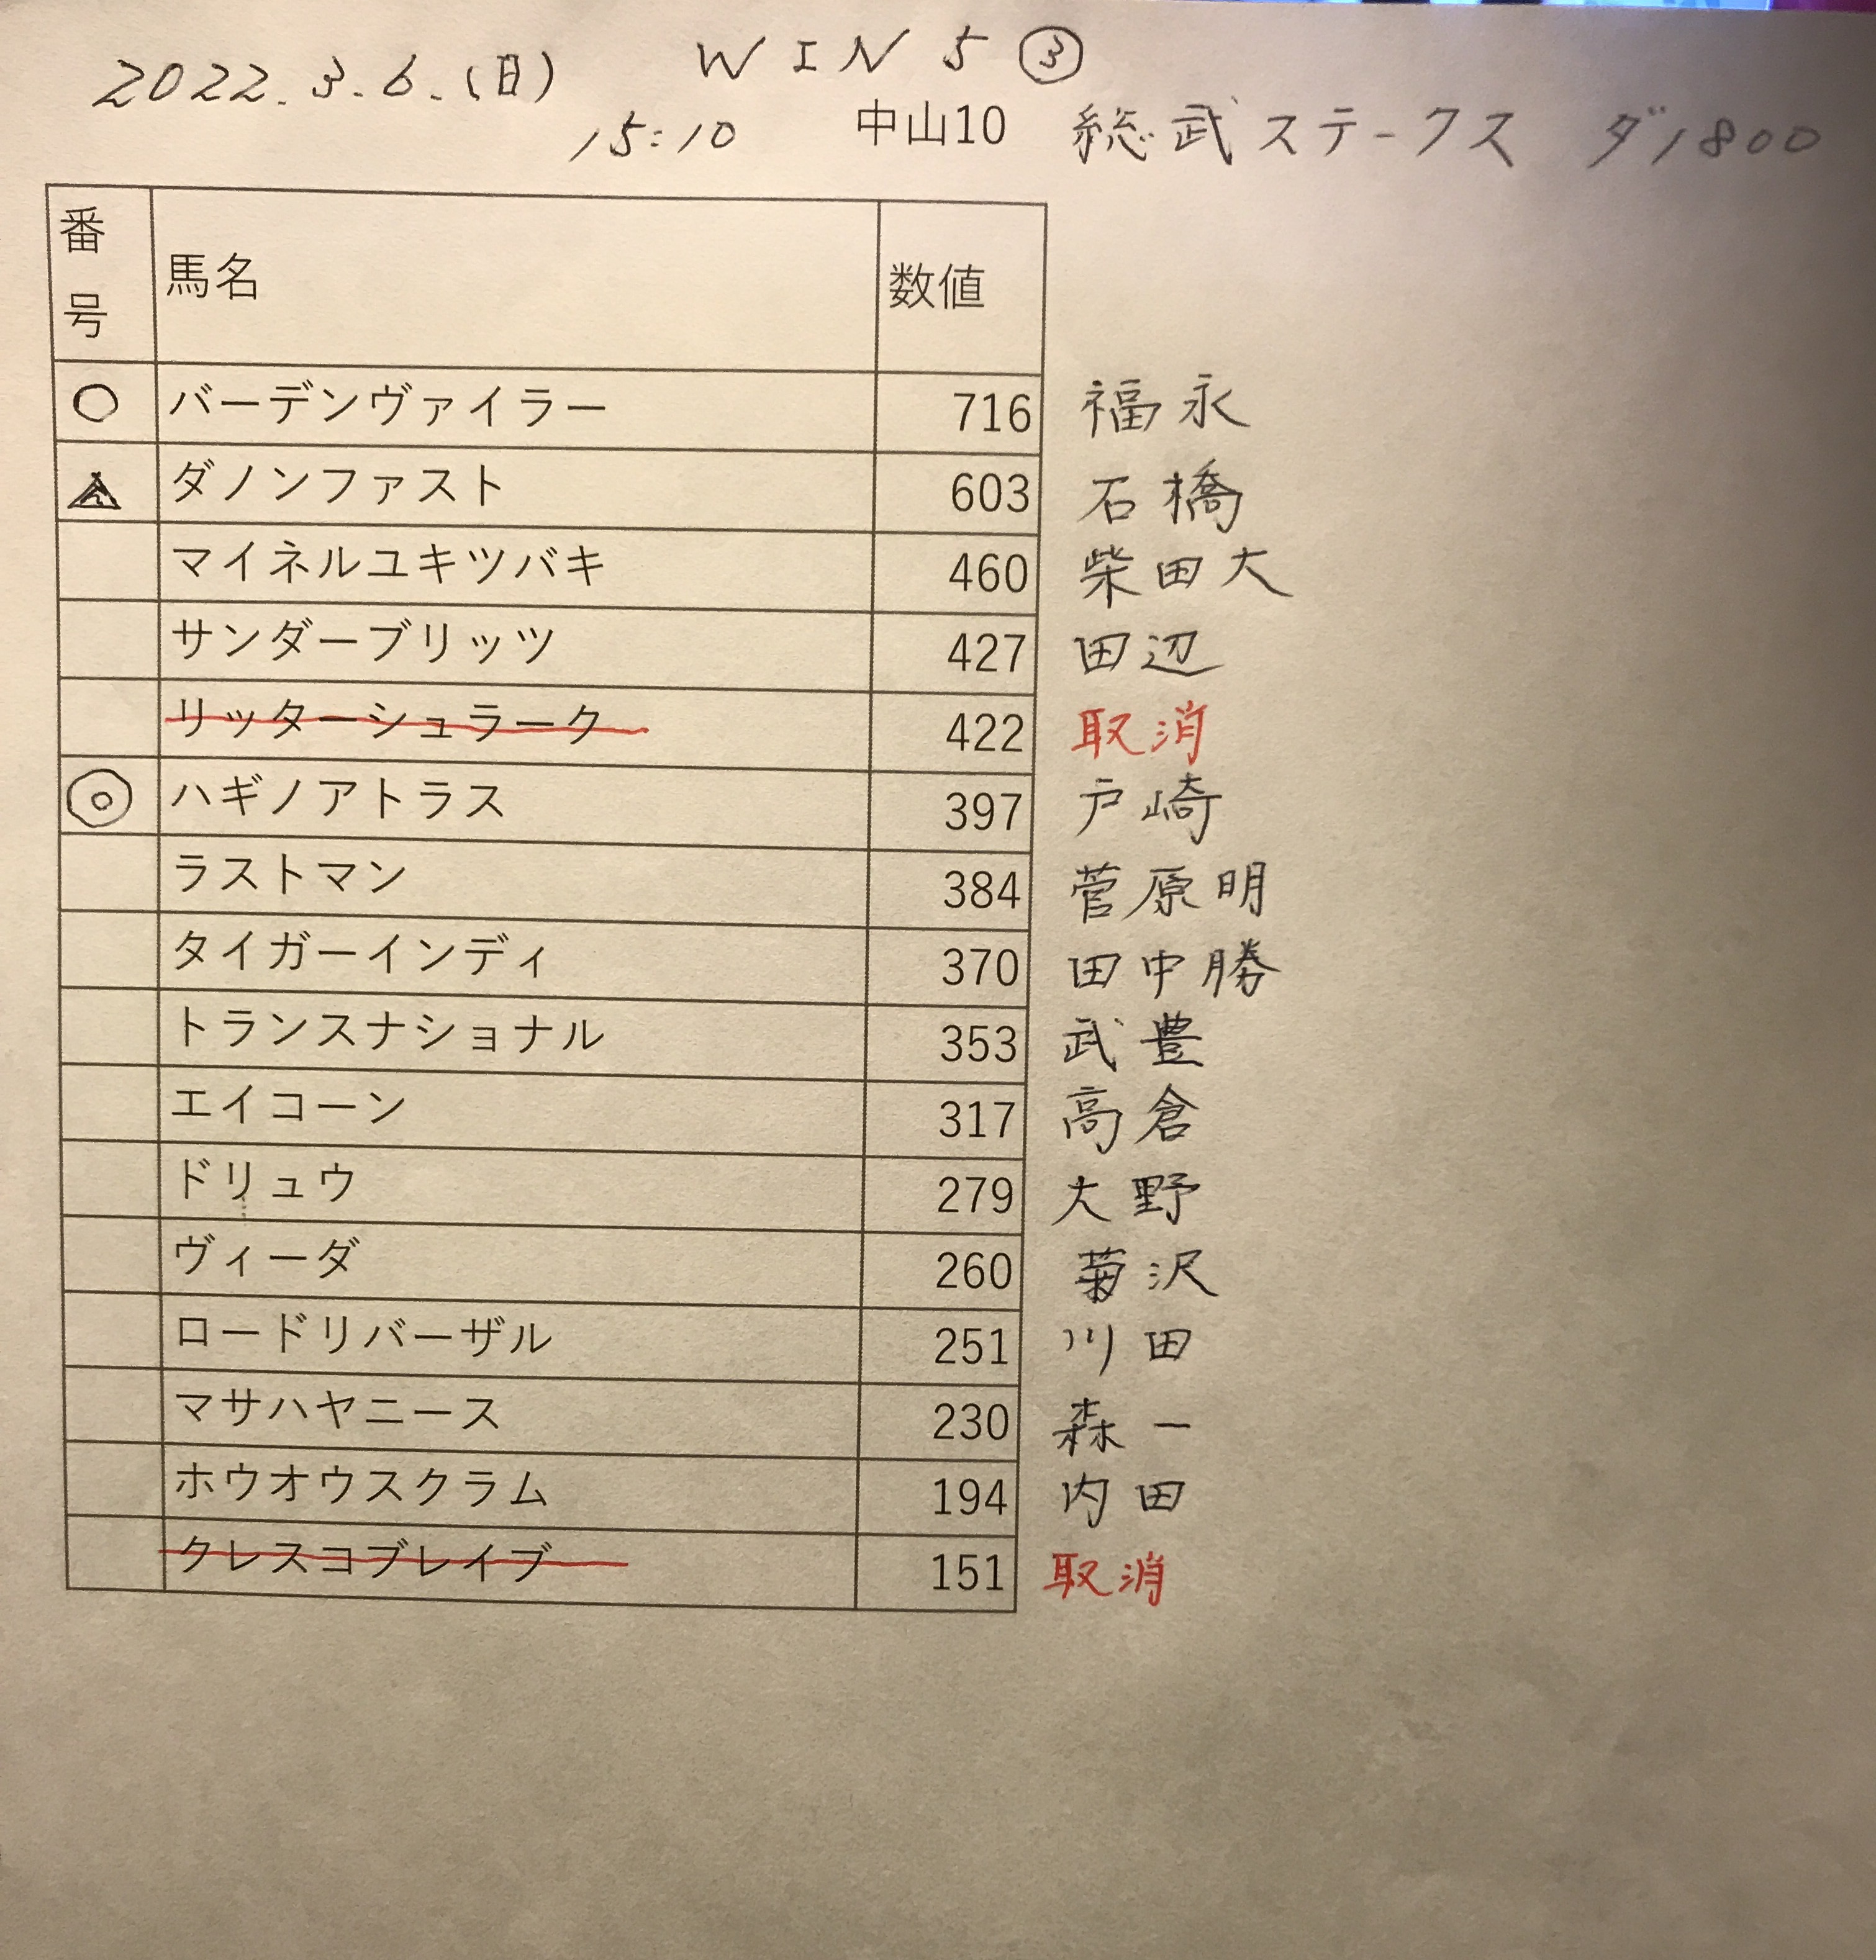 2022.3.6.(日) WIN5③
15:10 中山10 総武ステークス ダ1800
番号 馬名 数値
○ バーデンヴァイラー 716 福永
▲ ダノンファスト 603 石橋
マイネルユキツバキ 460 柴田大
サンダーブリッツ 427 田辺
リッターシュラーク 422 取消
◎ ハギノアトラス 397 戸崎
ラストマン 384 菅原明
タイガーインディ 370 田中勝
トランスナショナル 353 武豊
エイコーン 317 高倉
ドリュウ 279 大野
ヴィーダ 260 菊沢
ロードリバーザル 251 川田
マサハヤニース 230 森一
ホウオウスクラム 194 内田
クレスコブレイブ 151 取消